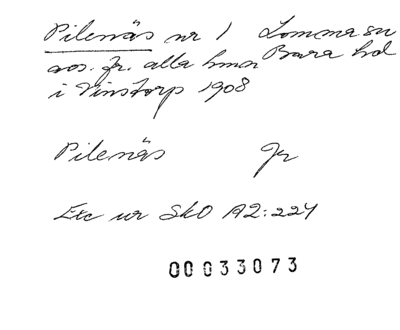 Pilenäs nr 1 Lomma sn
avs. fr. alla hmn Bara hd
i Vinstorp 1908
Pilenäs Jr
Exc ur SkO A2:224
00033073